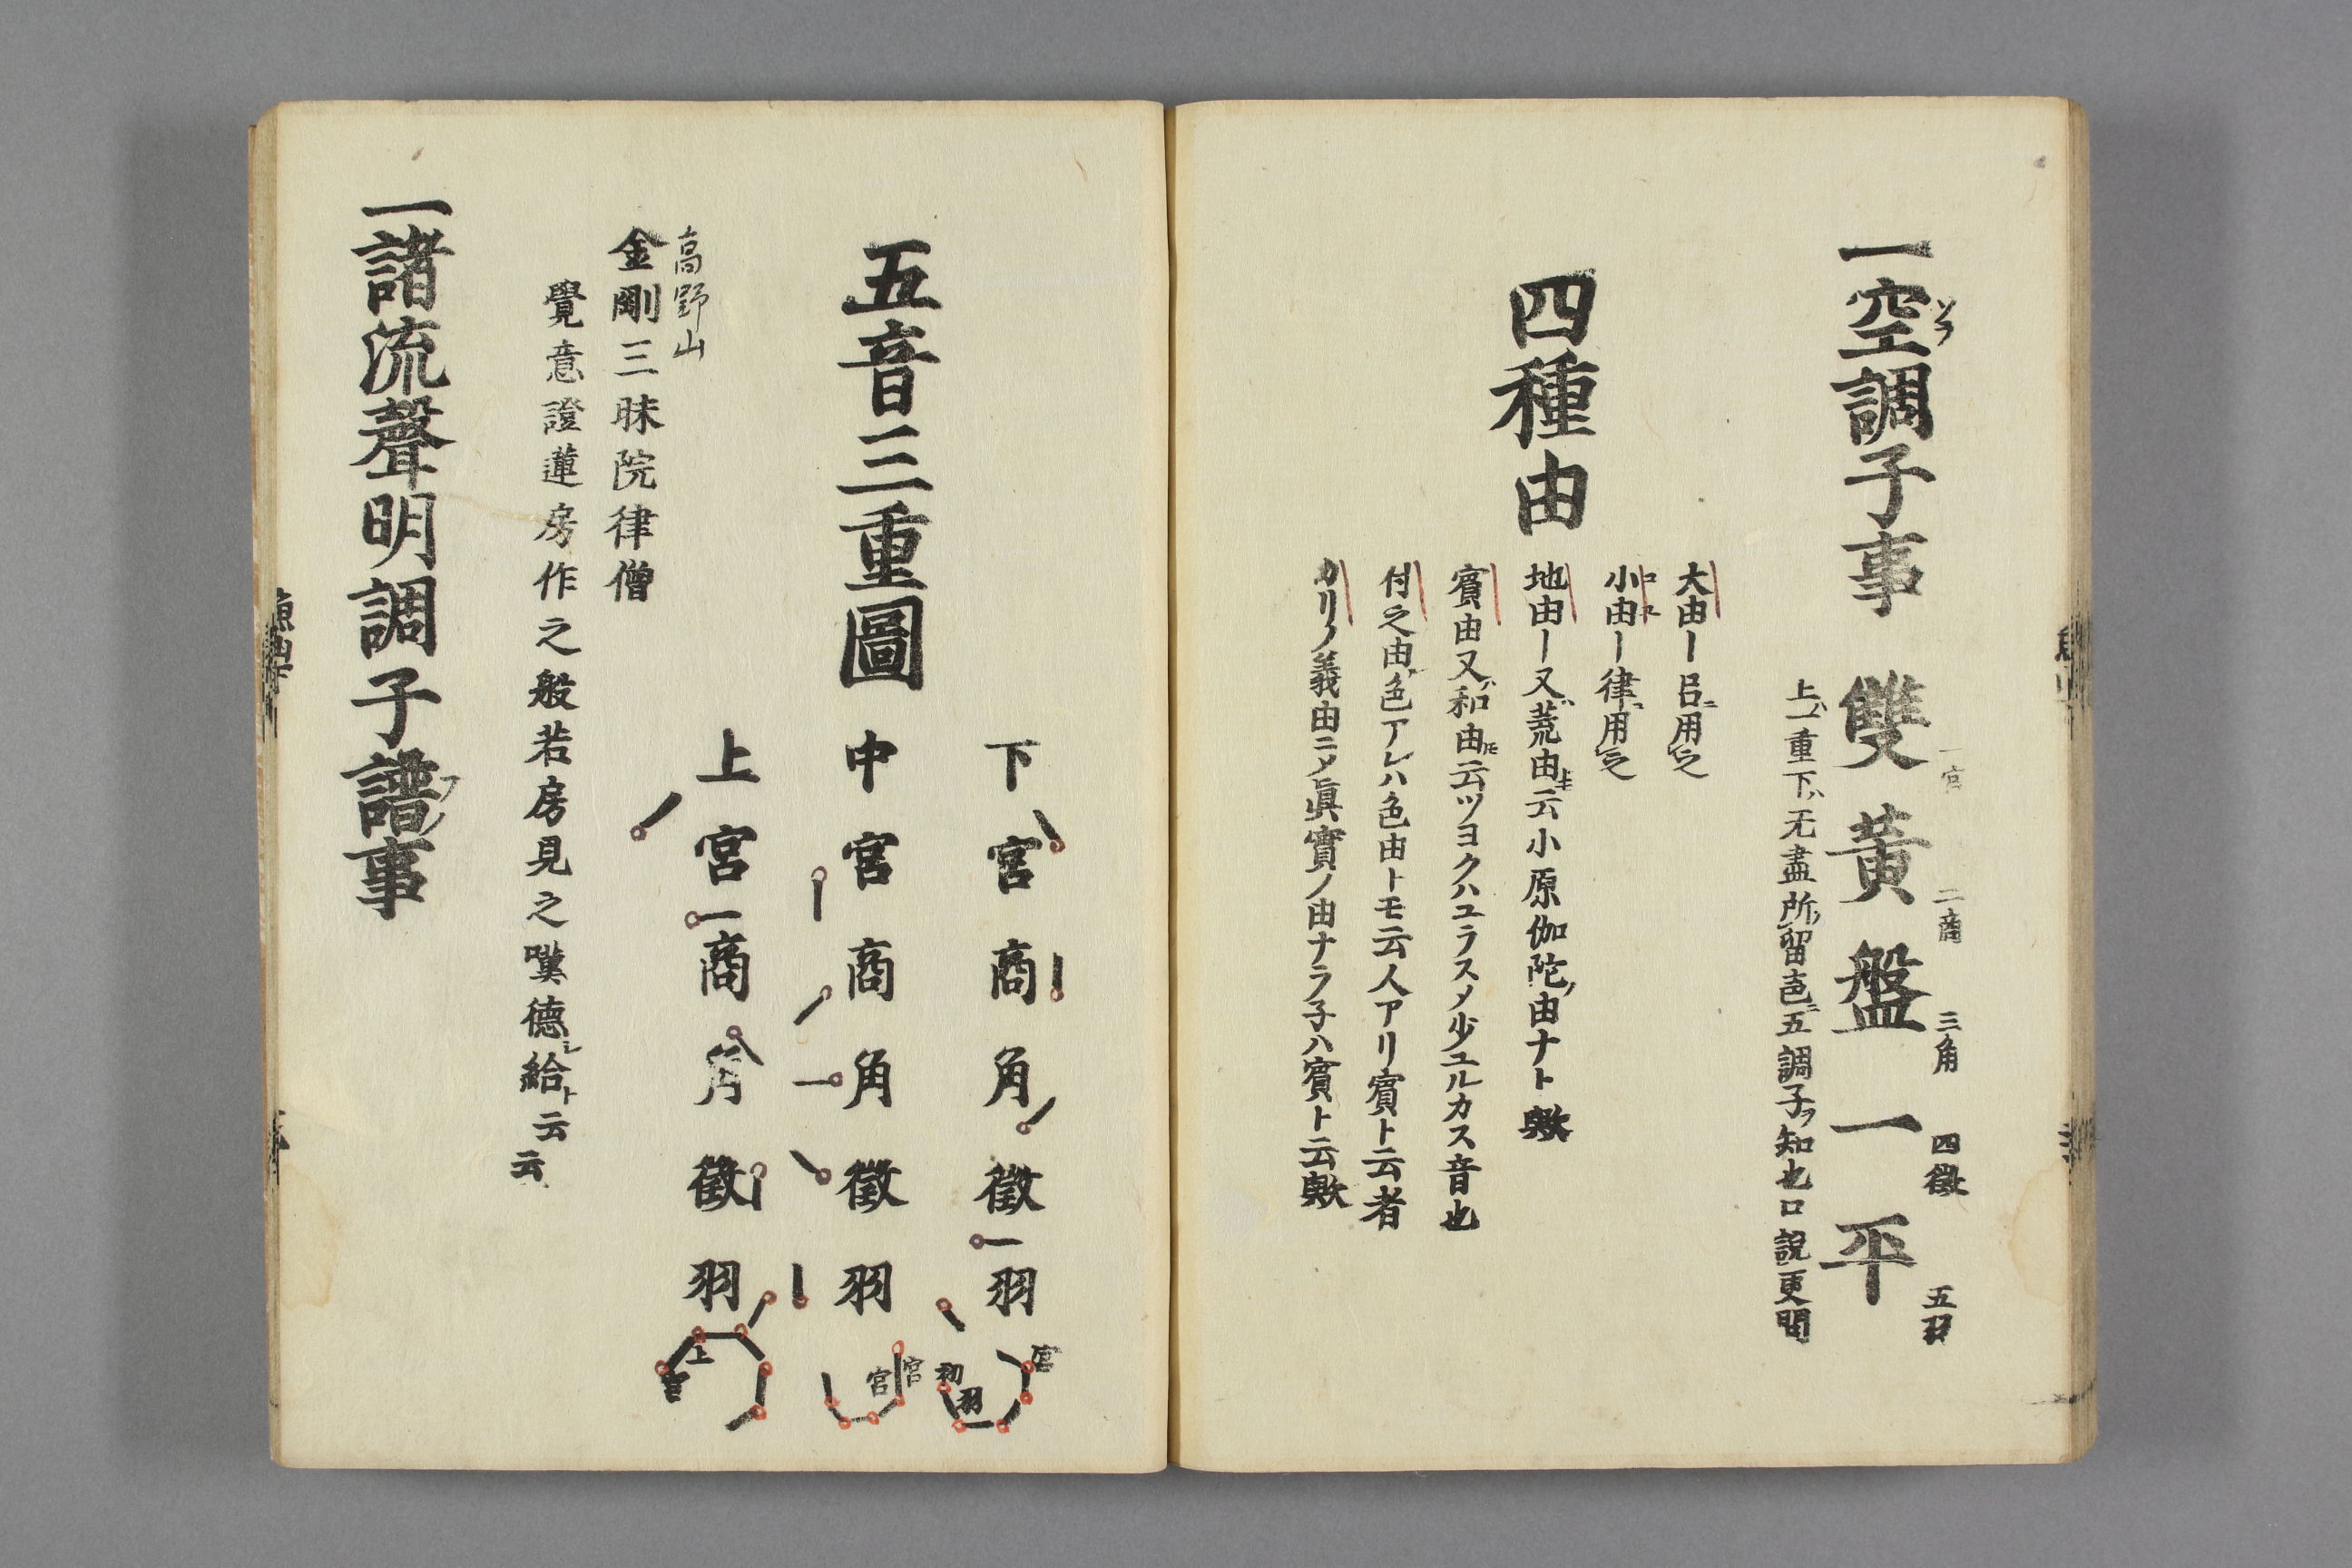 一空調子事 雙黃盤一平
ソラ
一宮 二商 三角 四徵 五羽
上一重下ハ无盡所留色ニ五調子ヲ知也口說更問
四種由
大由ー呂ニ用之
小由ー律ニ用之
地由ー又ハ荒由トモ云小原伽陀ノ由ナト歟
賓由又ハ和由トモ云ツヨクハユラスメ少ユルカス音也
付之由色アレハ色由トモ云人アリ賓ト云者
カリノ義由ニメ眞實ノ由ナラ子ハ賓ト云歟
五音三重圖
下 宮 商 角 徵 羽
中 宮 商 角 徵 羽
上 宮 商 角 徵 羽
宮 初 羽
宮 宮
上
高野山
金剛三昧院律僧
覺意證蓮房作之般若房見之嘆德シ給ト云云
一諸流聲明調子譜事